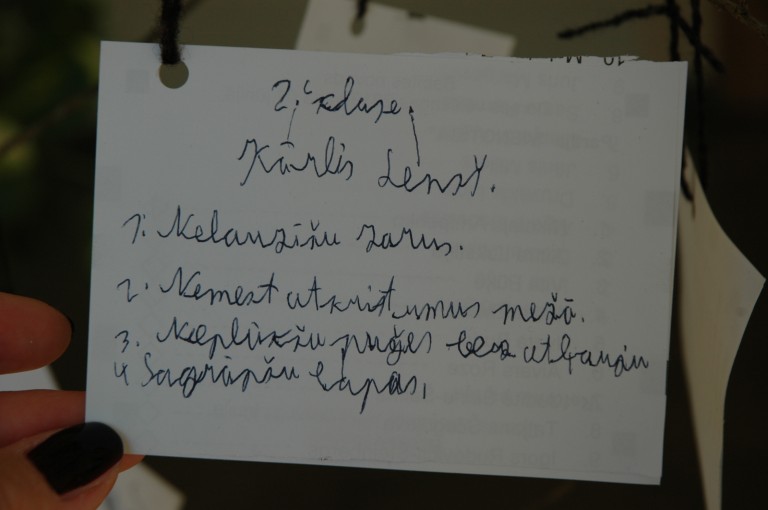 2. c klase.
Kārlis Lenšs.
1. Nelauzīšu zarus.
2. Nemest atkritumus mežā.
3. Neplūkšu puķes bez atļauju
4 Sagrābšu lapas.